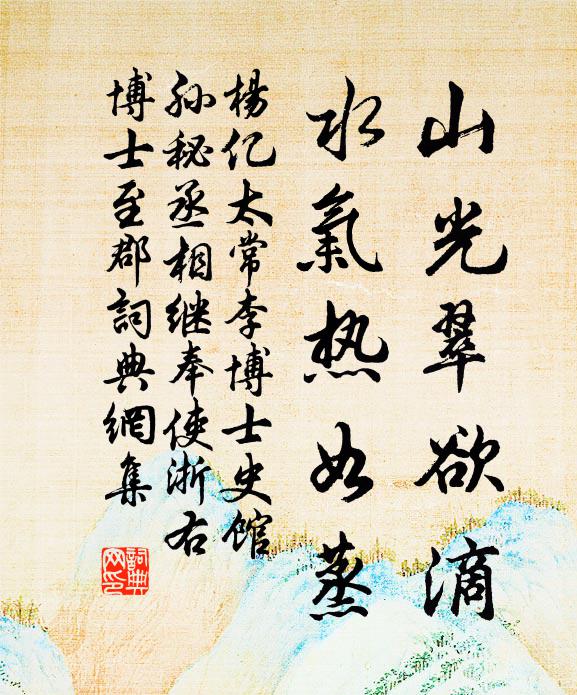 山光翠欲滴
水氣热如蒸
楊亿太常李博士史馆
孙秘丞相继奉使浙右
博士至郡詞典網集
詞典
网印